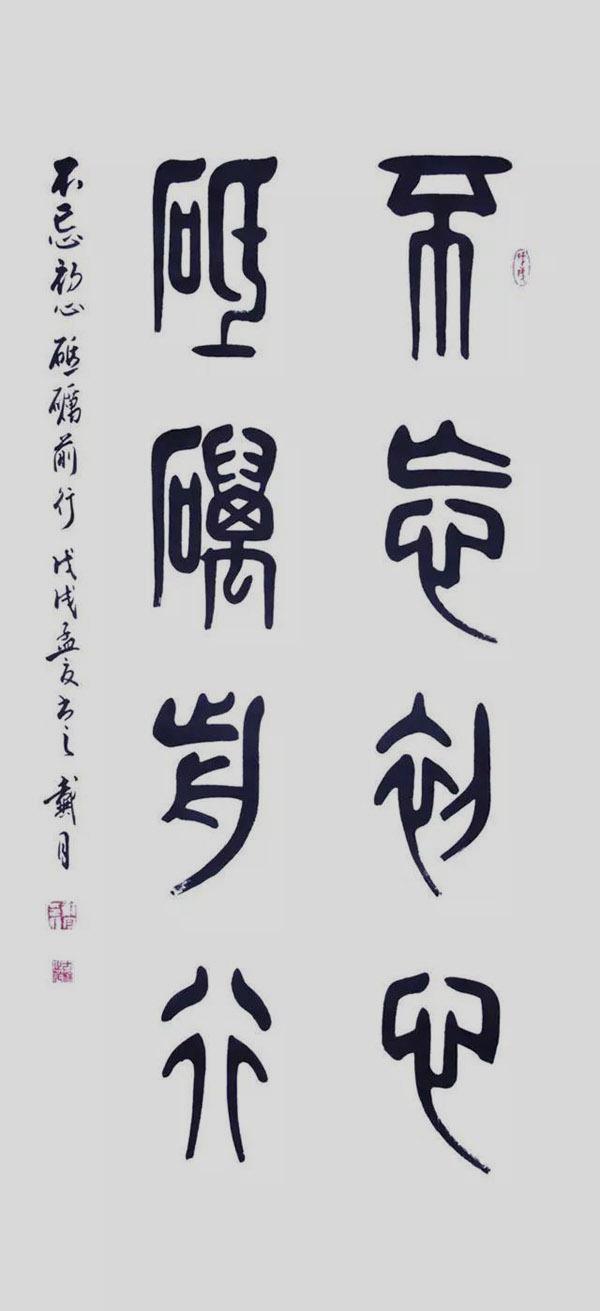 不忘初心
砥礪前行
不忘初心砥礪前行戊戌孟夏書之戴月